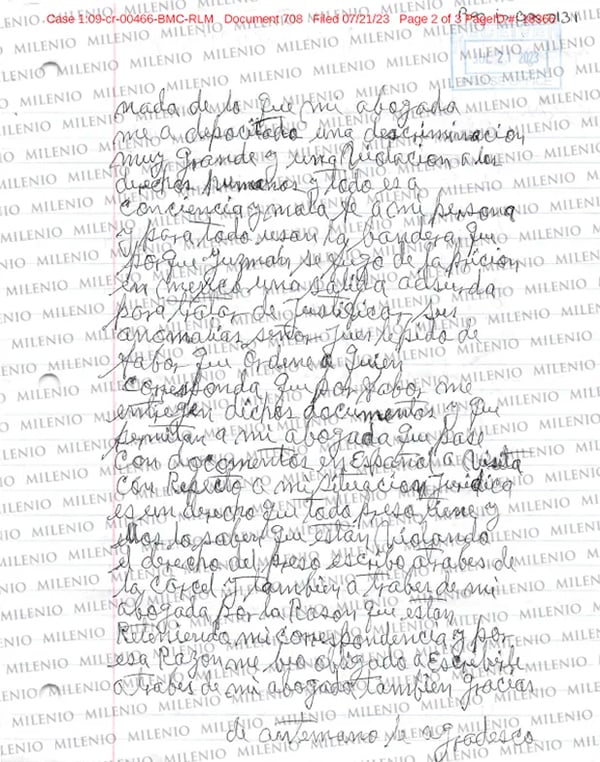 Case 1:09-cr-00466-BMC-RLM Document 708 Filed 07/21/23 Page 2 of 3 PageID #:
nada de lo que mi abogada
me a depocitado una descriminacion
muy grande y una Violacion a los
derechos humanos y todo es a
conciencia y mala fe a mi persona
y para todo usan la bandera que
porque Guzman se fugo de la pricion
en mexico una salida adsurda
para tratar de Justificar sus
anomalias señor Juez le pido de
fabor que ordene a quien
corresponda que por fabor me
entregen dichos documentos y que
permitan a mi abogada que pase
con documentos en Español a Visita
con Repecto a mi situacion Juridica
es un derecho que todo preso tiene y
ellos lo saben que estan Violando
el derecho del preso escribo atrabes de
la carcel y tambien atrabes de mi
abogada por la Rason que estan
Reteniendo mi correspondencia y por
esa Razon me beo obligado a Escribirle
atrabes de mi abogada tambien Gracias
de antemano le agradesco
MILENIO